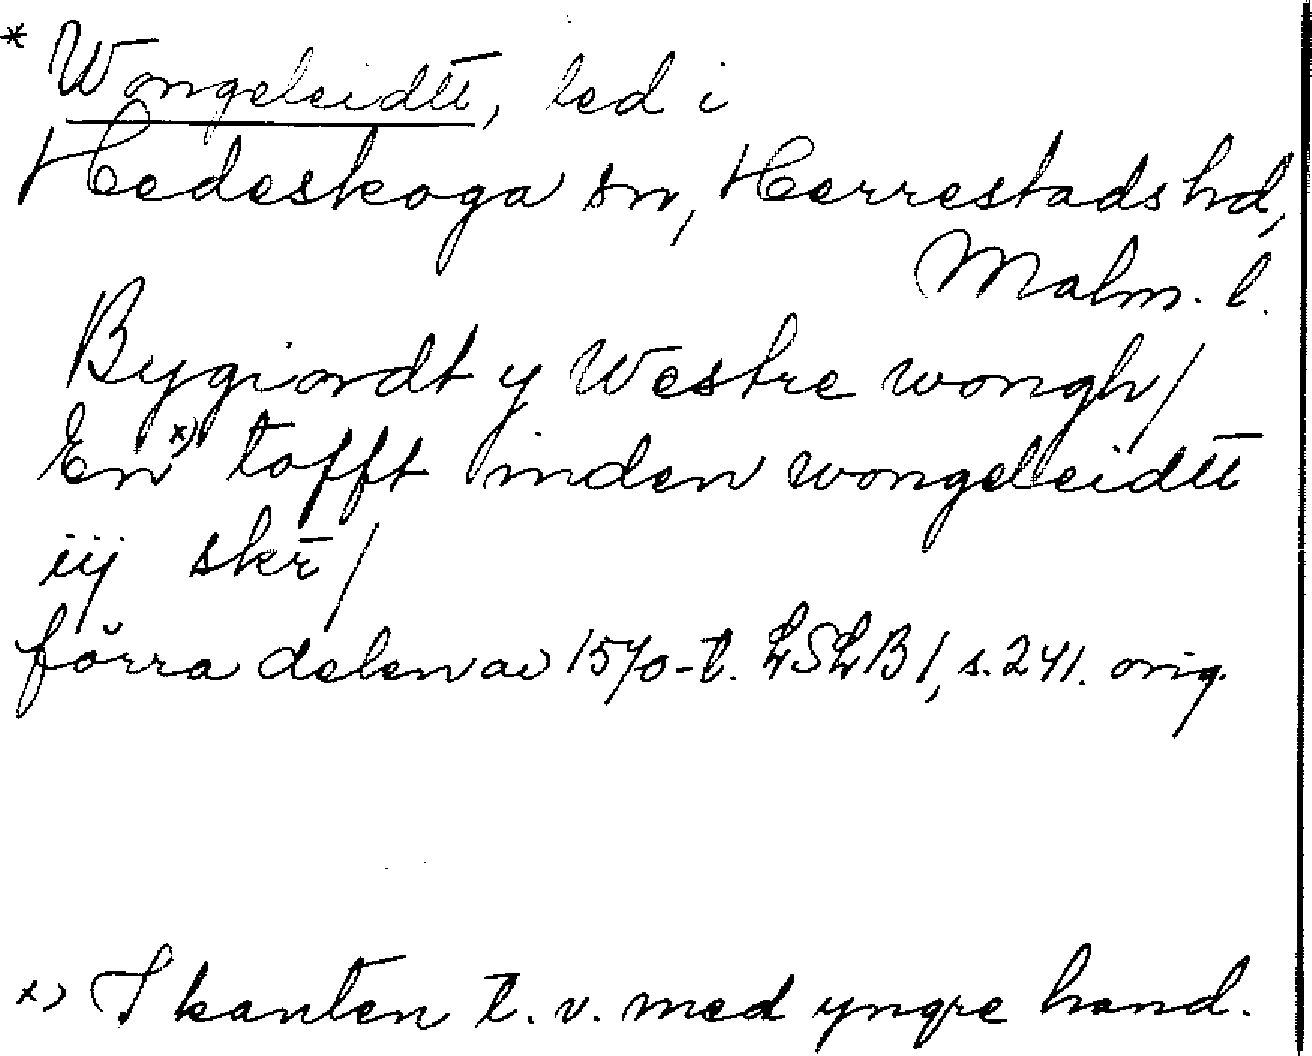 * Wongeleidtt, led i
Hedeskoga sn, Herrestads hd,
Malm. l.
Bygiordt y Westre wongh/
En x) tofft inden wongeleidtt
iij skr̄/
förra delen av 1570-t. LSLB 1, s. 241. orig.
x) I kanten t. v. med yngre hand.